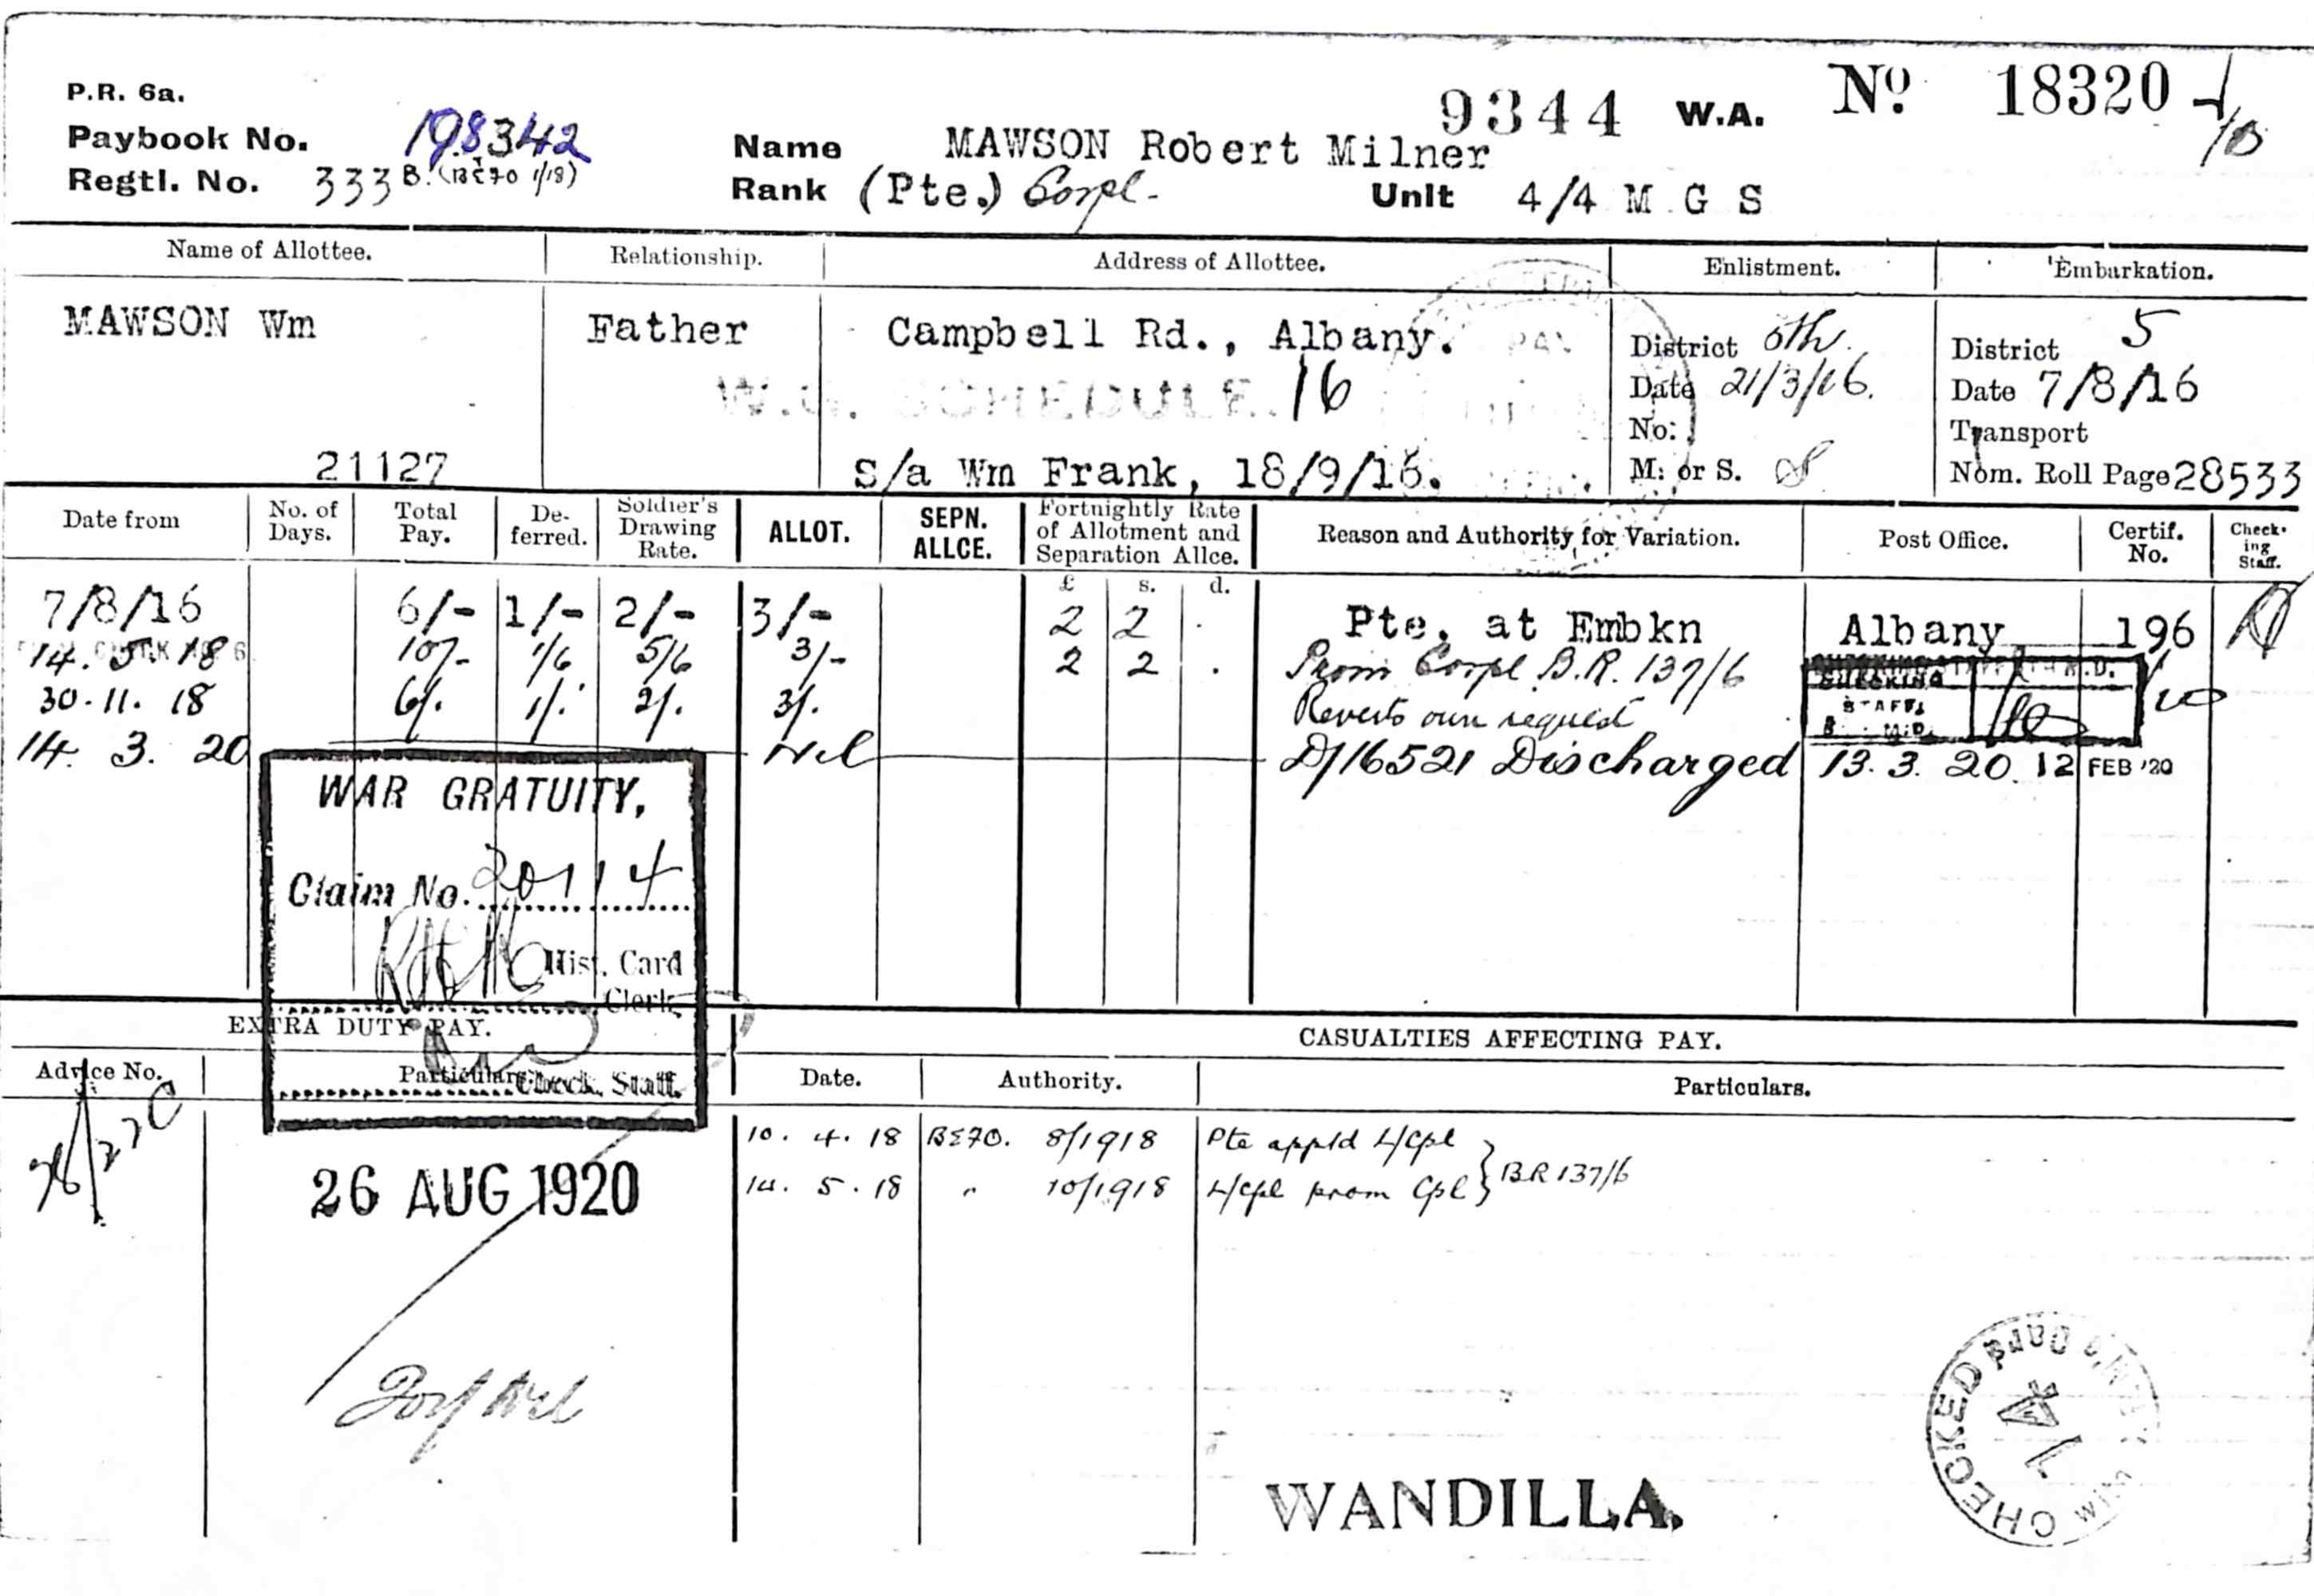 P.R. 6a.
9344 W.A. No. 18320
Paybook No. 198342
Name MAWSON Robert Milner
Regtl. No. 333 B. (BE70 1/18)
Rank (Pte.) Corpl. Unit 4/4 M G S
Name of Allottee. Relationship. Address of Allottee. Enlistment. Embarkation.
MAWSON Wm Father Campbell Rd., Albany. District 5th. District 5
W.G. SCHEDULE 16 Date 21/3/16. Date 7/8/16
No: Transport
21127 S/a Wm Frank, 18/9/16. M: or S. S Nom. Roll Page 28533
Date from No. of Days. Total Pay. De-ferred. Soldier's Drawing Rate. ALLOT. SEPN. ALLCE. Fortnightly Rate of Allotment and Separation Allce. Reason and Authority for Variation. Post Office. Certif. No. Check-ing Staff.
£ s. d.
7/8/16 6/- 1/- 2/- 3/- 2 2 . Pte. at Embkn Albany 196
14. 5. 18 10/- 1/6 5/6 3/- 2 2 . Prom Corpl B.R. 137/6
30. 11. 18 6/. 1/. 2/. 3/. Reverts own request
CHECKING STAFF, 5 M.D.
14. 3. 20 Nil D/16521 Discharged 13. 3. 20. 12 FEB '20
WAR GRATUITY,
Claim No. 20114
Hist. Card Clerk.
Check. Staff.
EXTRA DUTY PAY. CASUALTIES AFFECTING PAY.
Advice No. Particulars. Date. Authority. Particulars.
10. 4. 18 BE70. 8/1918 Pte appt'd L/Cpl
14. 5. 18 " 10/1918 L/Cpl prom Cpl } BR 137/6
26 AUG 1920
WANDILLA.
CHECKED